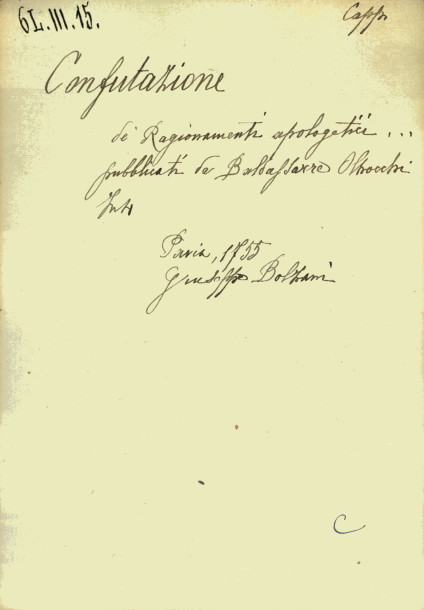 6L.III.15.
Capp.
Confutazione
de Ragionamenti apologetici ...
pubblicati da Baldassarre Oltrocchi
Pavia, 1755
Giuseppe Bolzani
C